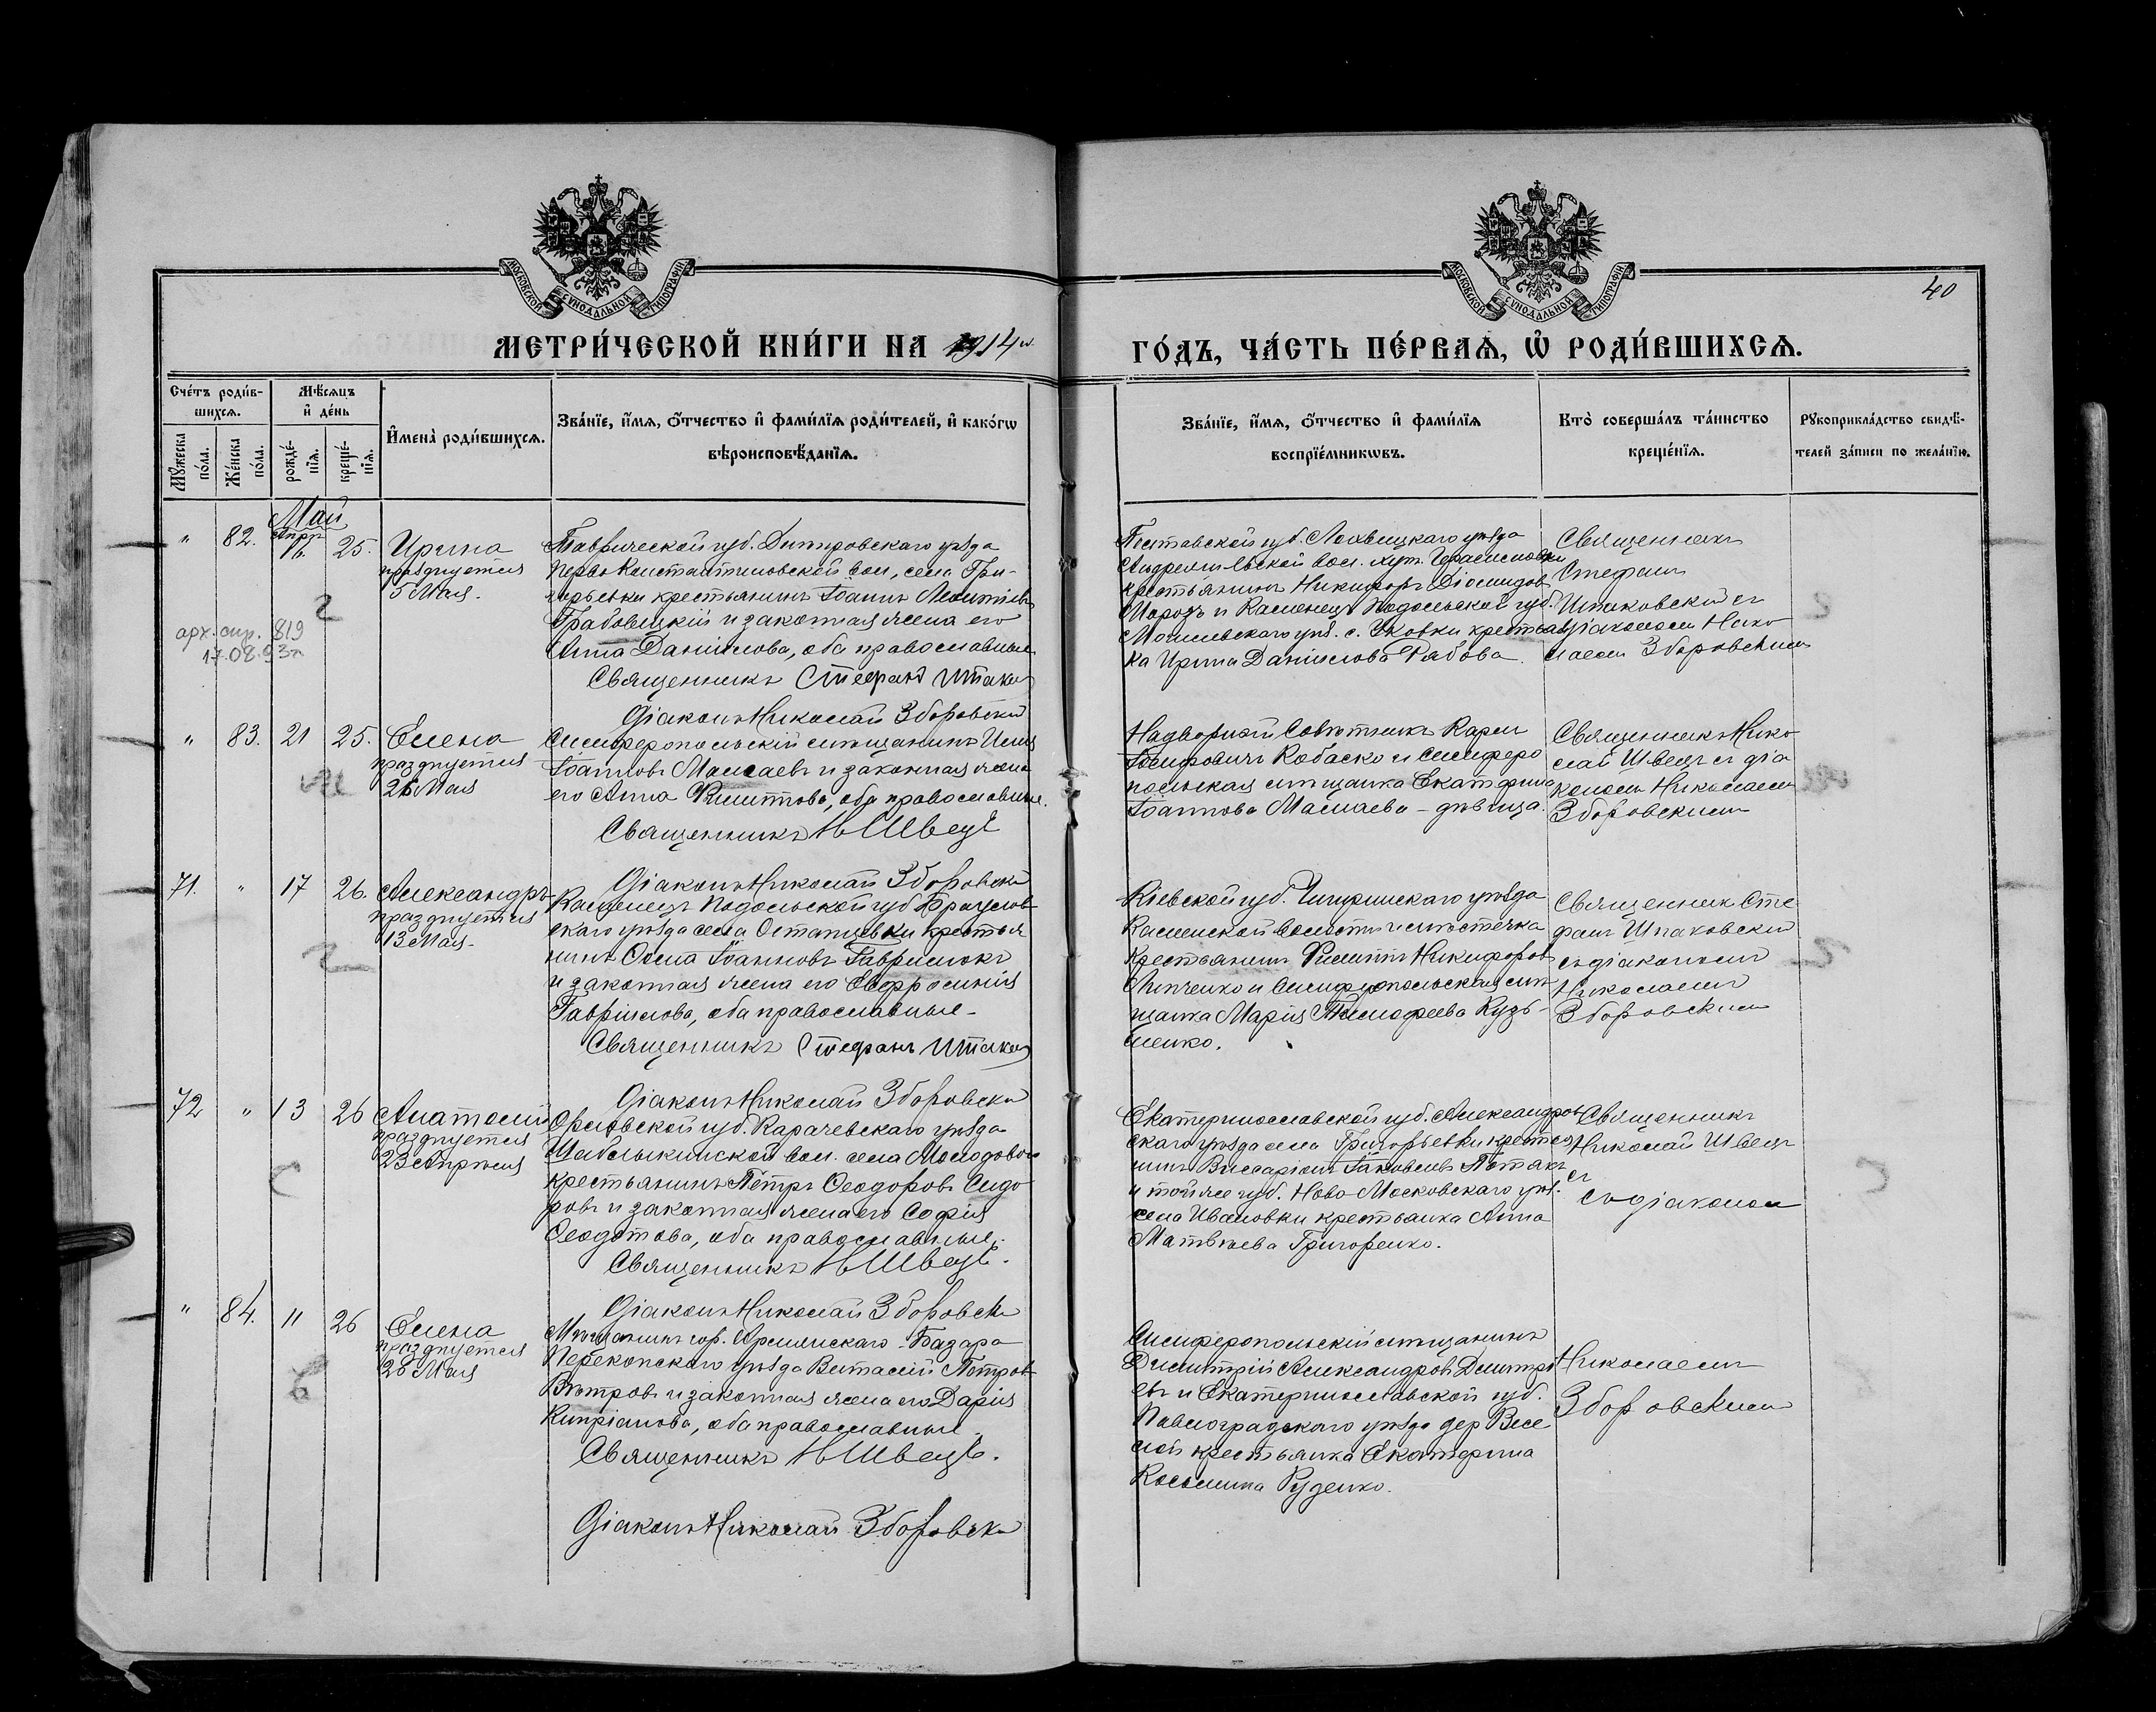 40
МОСКОВСКОЙ СУНОДАЛЬНОЙ ТИПОГРАФІИ
МОСКОВСКОЙ СУНОДАЛЬНОЙ ТИПОГРАФІИ
МЕТРИ́ЧЕСКОЙ КНИ́ГИ НА 1914й ГО́ДЪ, ЧА́СТЬ ПЕ́РВАѦ, Ѡ҆ РОДИ́ВШИХСѦ.
Сче́тъ роди́вшихсѧ.
Мꙋ́жеска по́ла.
Же́нска по́ла.
Мѣ́сѧцъ и҆ де́нь
рожде́нїѧ.
креще́нїѧ.
И҆мена̀ роди́вшихсѧ.
Зва́нїе, и҆́мѧ, ѻ҆́тчество и҆ фами́лїѧ роди́телей, и҆ како́гѡ
вѣроисповѣ́данїѧ.
Зва́нїе, и҆́мѧ, ѻ҆́тчество и҆ фами́лїѧ
воспрїе́мникѡвъ.
Кто̀ соверша́лъ та́инство
креще́нїѧ.
Рꙋкоприкла́дство свидѣ́-
телей за́писи по жела́нїю.
Май
" 82. Апр. 16. 25.
Ирина
празднуется
5 Мая.
арх. спр. 819
17.08.93г.
Таврической губ. Днѣпровскаго уѣзда
Перво Константиновской вол., села Гри-
горьевки крестьянинъ Іоаннъ Леонтіевъ
Грабовецкій и законная жена его
Анна Даніилова, оба православные
Священникъ Стефанъ Шпаков
Діаконъ Николай Зборовски
Полтавской губ. Лохвицкаго уѣзда
вол. хут. Герасимовки
крестьянинъ Никифоръ Діомидовъ
Морозъ и Каменецъ Подольской губ.
Могилевскаго уѣз. с. крестьян
ка Ирина Даніилова Рябова.
Священникъ
Стефанъ
Шпаковскій съ
діакономъ Нико
лаемъ Зборовскимъ
" 83. 21 25.
Елена
празднуется
26 Мая
Симферопольскій мѣщанинъ Илія
Іоанновъ Мамаевъ и законная жена
его Анна Филиппова, оба православные.
Священникъ Н Швецъ
Діаконъ Николай Зборовски
Надворный Совѣтникъ Карпъ
Іосифовичъ Кобаско и Симферо
польская мѣщанка Екатерина
Іоаннова Мамаева - дѣвица.
Священникъ Нико
лай Швецъ съ діа
кономъ Николаемъ
Зборовскимъ
71. " 17 26.
Александръ
празднуется
13 Мая
Каменецъ Подольской губ Брацлав
скаго уѣзда села Остапковки крестья
нинъ Ѳома Іоанновъ Гаврилюкъ
и законная жена его Евфросинія
Гавріилова, оба православные
Священникъ Стефанъ Шпаков
Діаконъ Николай Зборовски
Кіевской губ. Чигиринскаго уѣзда
Каменской волости и мѣстечка
Крестьянинъ Филиппъ Никифоровъ
Липченко и Симферопольская мѣ
щанка Марія Тимофеева Кузь-
менко.
Священник Сте
фанъ Шпаковскій
съ діакономъ
Николаемъ
Зборовскимъ
72 " 13 26
Анатолій
празднуется
23 Апрѣля
Орловской губ. Карачевскаго уѣзда
Шаблыкинской вол. села Молодовое
крестьянинъ Петръ Ѳеодоровъ Сидо
ровъ и законная жена его Софія
Ѳеодотова, оба православные.
Священникъ Н Швецъ.
Діаконъ Николай Зборовски
Екатеринославской губ. Александров
скаго уѣзда села Григорьевки крестья
нинъ Виссаріонъ Іаковлевъ Потакъ
и той же губ. Ново Московскаго уѣз.
села Ивановки крестьянка Анна
Матвѣева Григоренко.
Священникъ
Николай Швецъ
съ
съ діакономъ
" 84. 11 26
Елена
празднуется
26 Мая
Мѣщанинъ гор. Армянскаго-Базара
Перекопскаго уѣзда Виталій Петровъ
Вѣтровъ и законная жена его Дарія
Кипріанова, оба православные.
Священникъ Н Швецъ.
Діаконъ Николай Зборовски
Симферопольскій мѣщанинъ
Димитрій Александровъ Димитрі
евъ и Екатеринославской губ.
Павлоградскаго уѣзда дер Весе
лой крестьянка Екатерина
Косьмина Руденко.
Николаемъ
Зборовскимъ